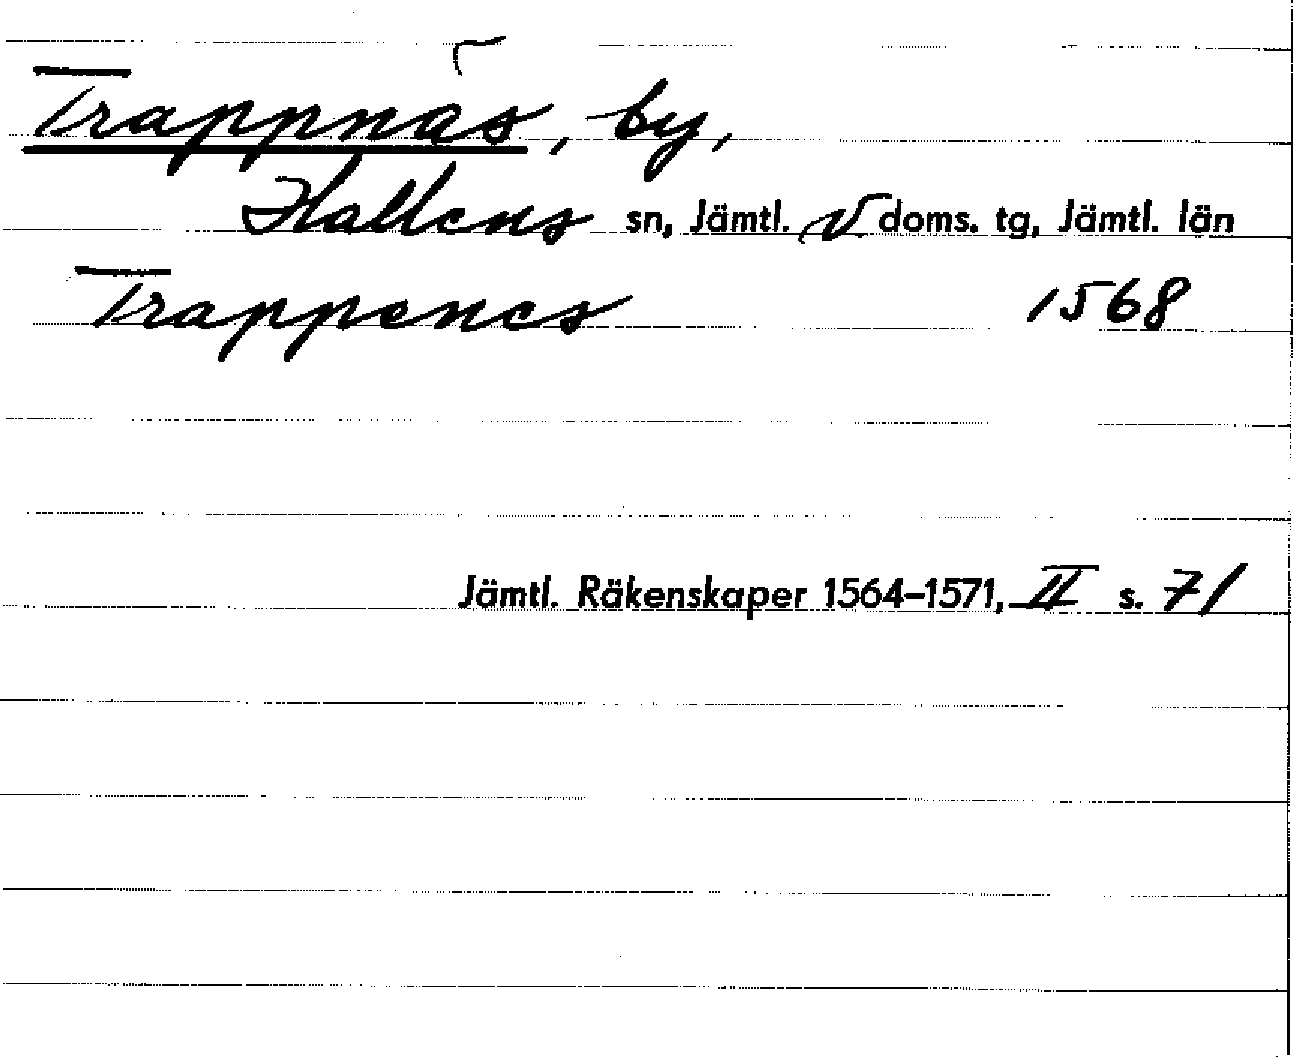 Trappnäs, by,
Hallens sn, Jämtl. V doms. tg, Jämtl. län
Trappenes 1568
Jämtl. Räkenskaper 1564–1571, II s. 71